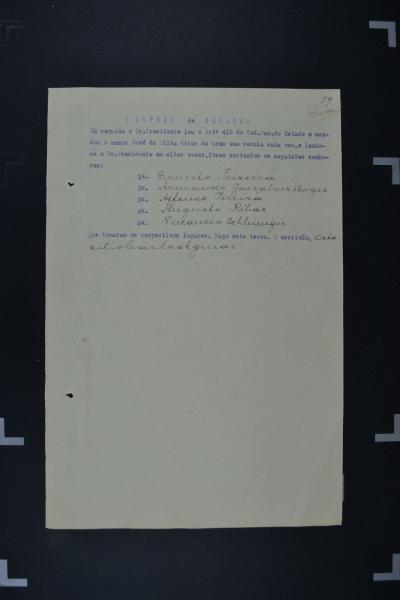 SORTEIO de JURADOS
Em seguida o Dr.Presidente leu o artº 418 do Cod.Pen.do Estado e man-
dou o menor José da Silva tirar da urna uma cedula cada vez,e lendo-
as o Dr.Presidente em altas vozes,foram sorteados os seguintes senho-
res:
1º- Ernesto Teixeira
2º- Armando Gonçalves Borges
3º- Affonso Pereira
4º- Augusto Ribas
5º- Venancio Schleiniger
que tomaram os respectivos logares. Faço este termo. O escrivão,